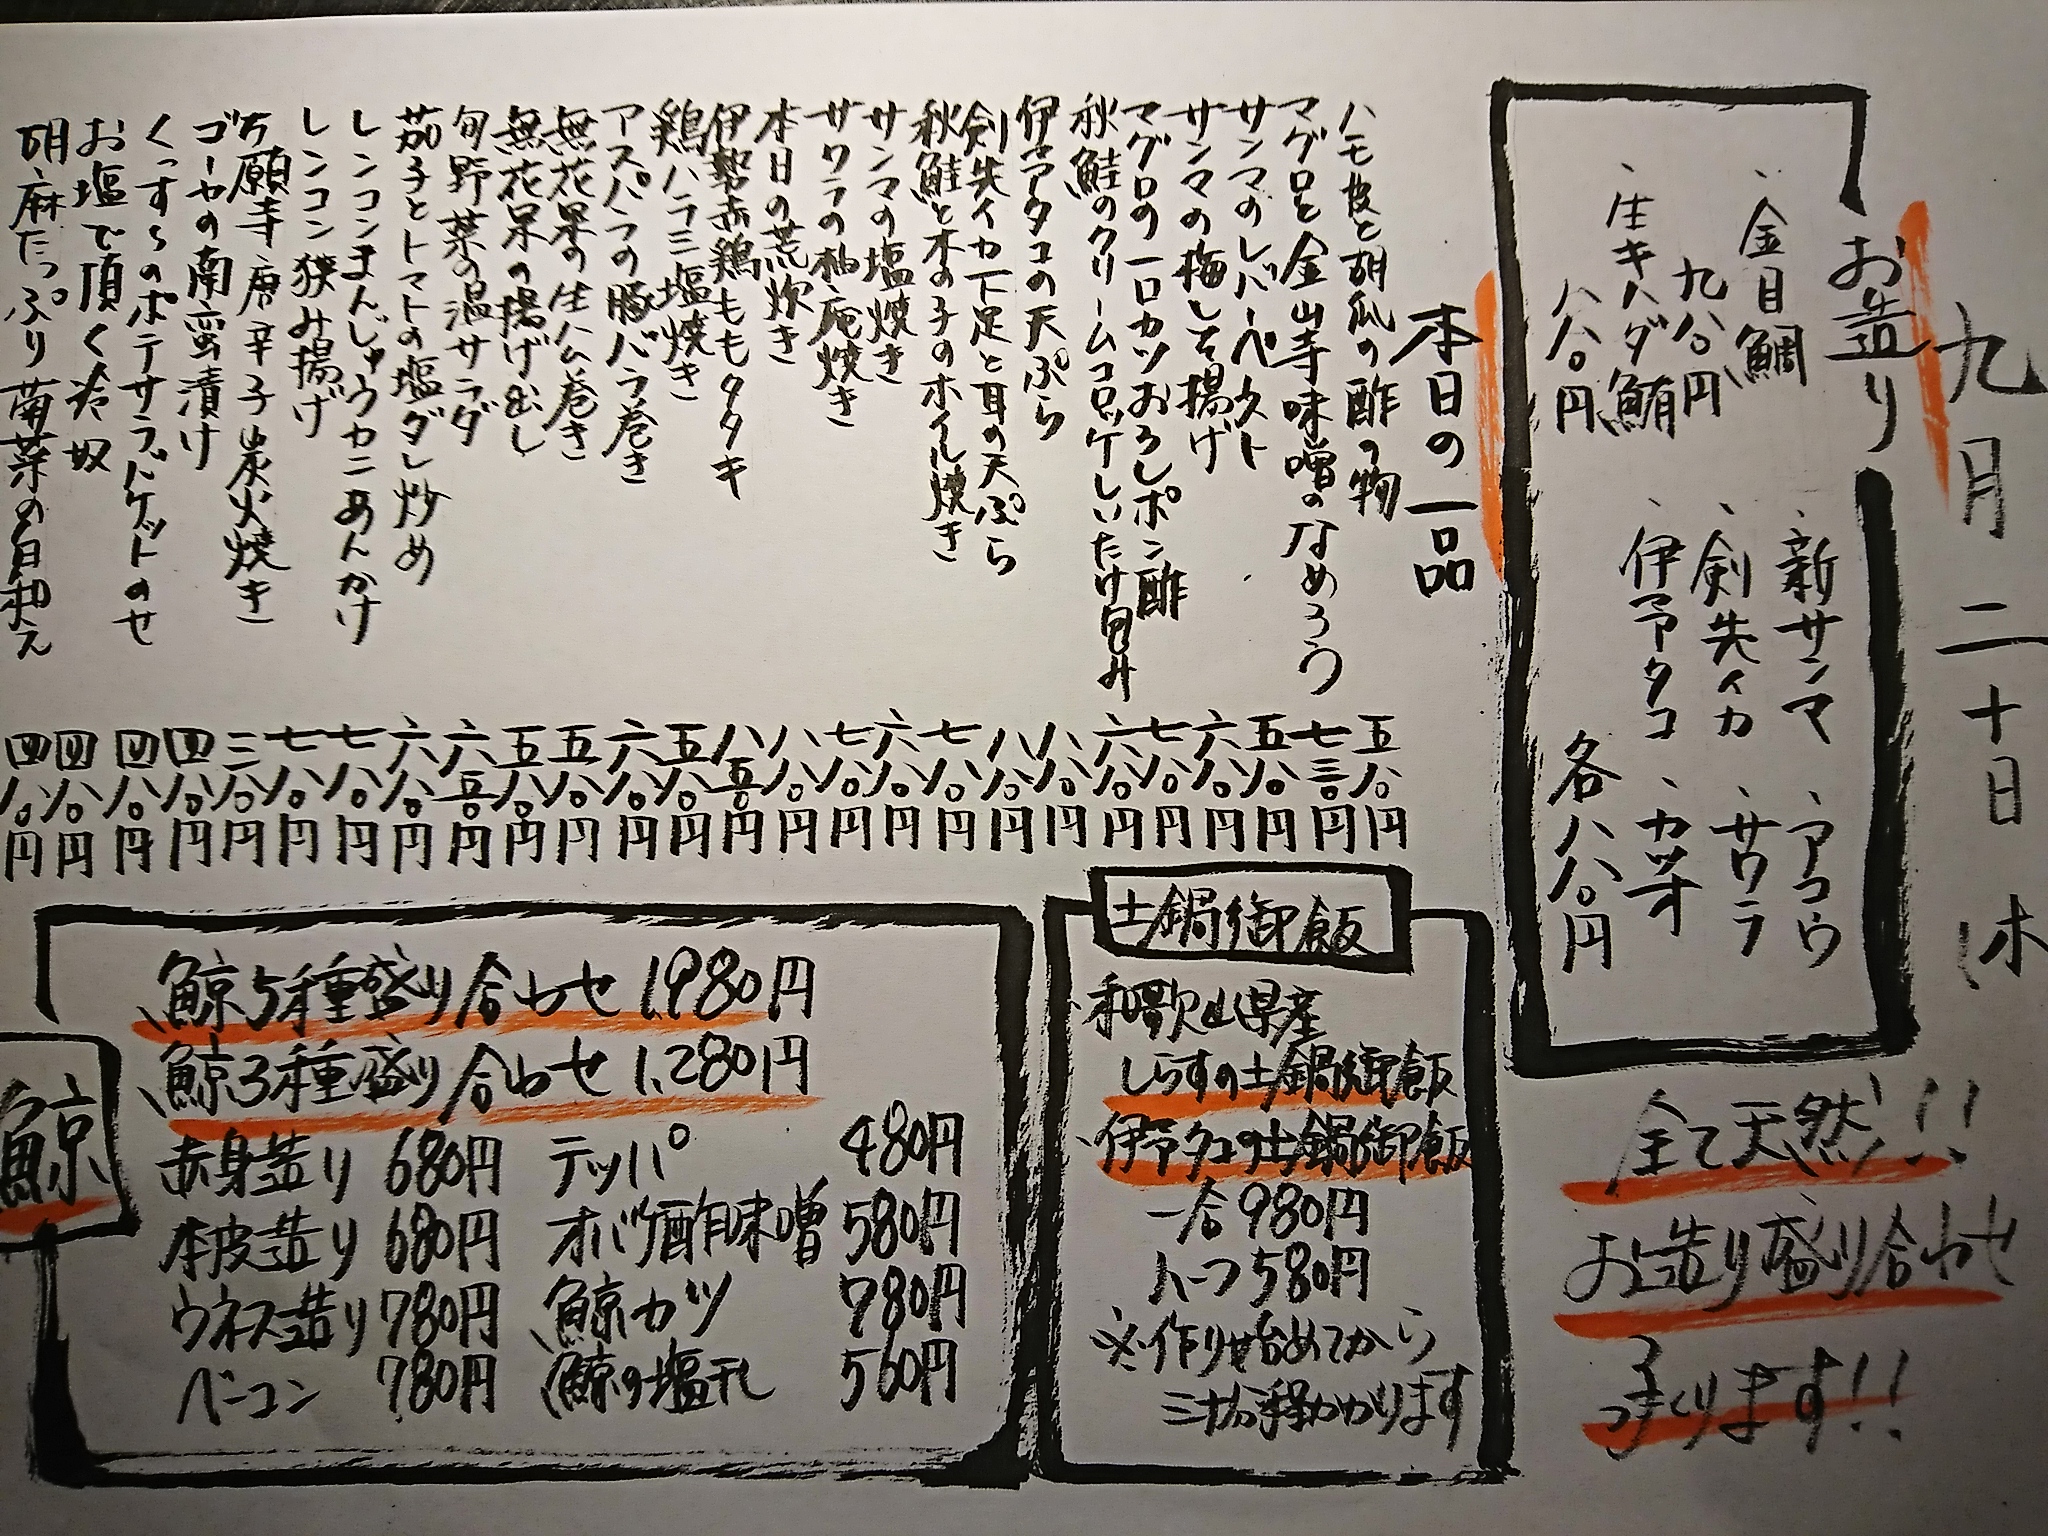 九月二十日(木)
お造り
、金目鯛
九八〇円
、生キハダ鮪
八八〇円
、新サンマ、アコウ
、剣先イカ、サワラ
、伊予タコ、カツオ
各八八〇円
全て天然!!
お造り盛り合わせ
つくります!!
本日の一品
ハモ皮と胡瓜の酢の物 五八〇円
マグロと金山寺味噌のなめろう 七三〇円
サンマのレバーペースト 五八〇円
サンマの梅しそ揚げ 六八〇円
マグロの一口カツおろしポン酢 七八〇円
秋鮭のクリームコロッケしいたけ包み 六八〇円
伊予タコの天ぷら 八八〇円
剣先イカ下足と耳の天ぷら 八八〇円
秋鮭と木の子のホイル焼き 七八〇円
サンマの塩焼き 六八〇円
サワラの柚庵焼き 七八〇円
本日の荒炊き 八八〇円
伊勢赤鶏ももタタキ 八五〇円
鶏ハラミ塩焼き 五八〇円
アスパラの豚バラ巻き 六八〇円
無花果の生ハム巻き 五八〇円
無花果の揚げ出し 五八〇円
旬野菜の温サラダ 六五〇円
茄子とトマトの塩ダレ炒め 六八〇円
レンコンまんじゅうカニあんかけ 七八〇円
レンコン挟み揚げ 七八〇円
万願寺唐辛子炭火焼き 三八〇円
ゴーヤの南蛮漬け 四八〇円
くじらのポテサラバケットのせ 四八〇円
お塩で頂く冷奴 四八〇円
胡麻たっぷり菊菜の白和え 四八〇円
土鍋御飯
、和歌山県産
しらすの土鍋御飯
、伊予タコの土鍋御飯
一合980円
ハーフ580円
※作り始めてから
三十分程かかります
鯨
、鯨5種盛り合わせ 1,980円
、鯨3種盛り合わせ 1,280円
赤身造り 680円 テッパ 480円
本皮造り 680円 オバケ酢味噌 580円
ウネス造り 780円 鯨カツ 780円
ベーコン 780円 鯨の塩干し 560円